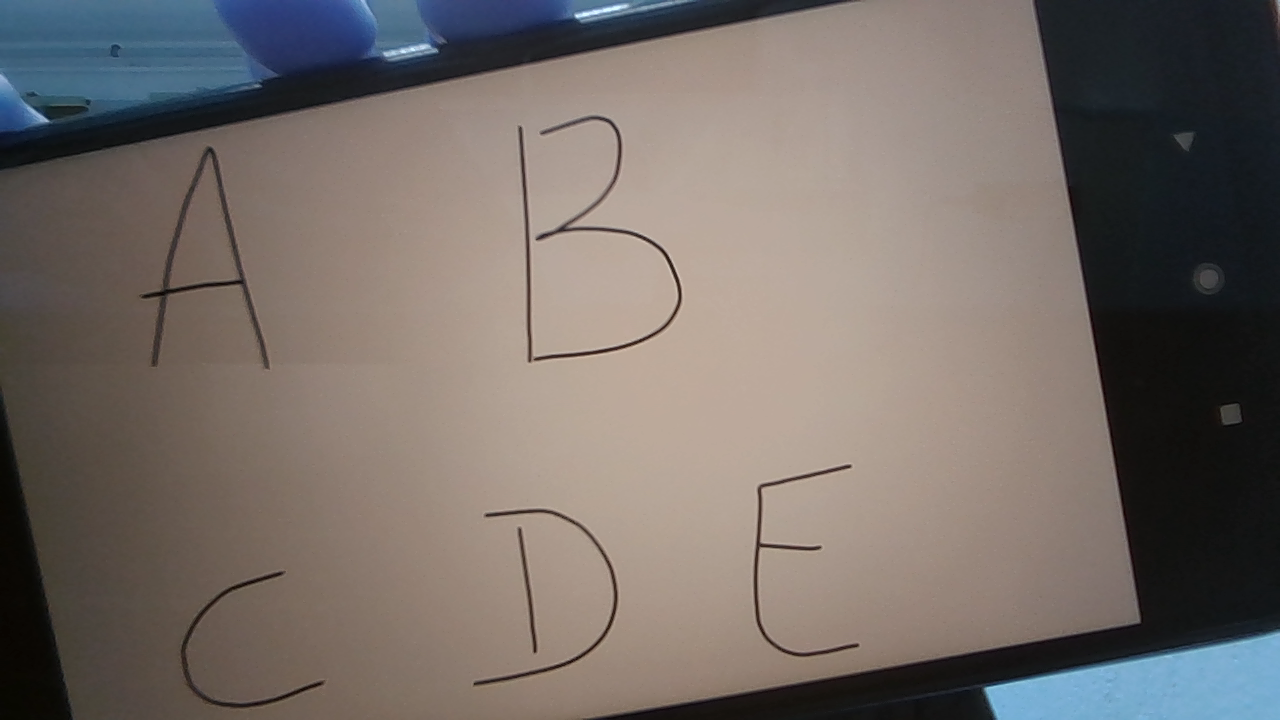 A B
C D E